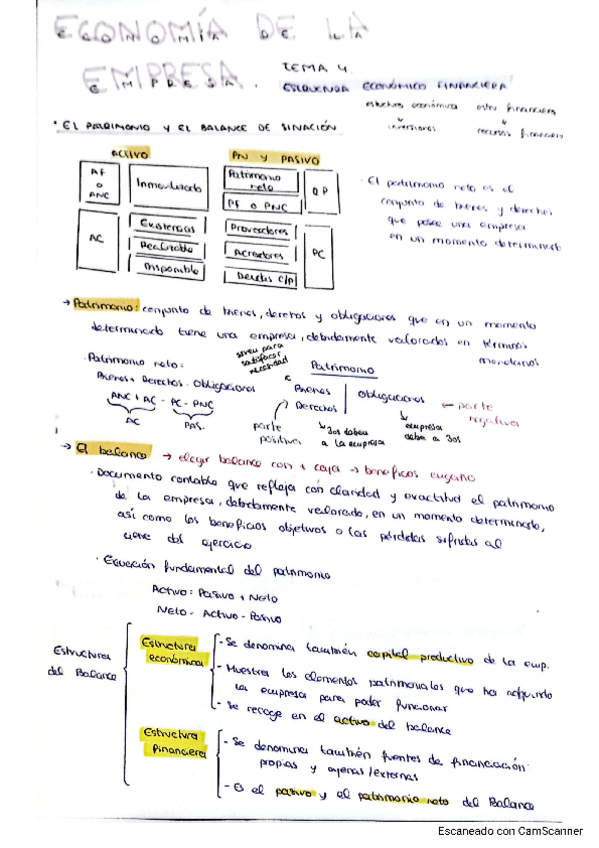 ECONOMÍA DE LA
EMPRESA.
TEMA 4.
ECONÓMICO FINANCIERA
estructura económica
inversiones
recursos financieros
· EL PATRIMONIO Y EL BALANCE DE SITUACIÓN
ACTIVO
PN y PASIVO
AF
o
ANC
Inmovilizado
AC
Existencias
Realizable
Disponible
Patrimonio
neto
PF o PNC
Proveedores
Acreedores
Deudas C/P
PC
· El patrimonio neto es el
conjunto de bienes y derechos
que posee una empresa
en un momento determinado
→ Patrimonio: conjunto de bienes, derechos y obligaciones que en un momento
determinado tiene una empresa, debidamente valorados en términos
monetarios
· Patrimonio neto:
Bienes + Derechos - Obligaciones
ANC + AC - PC - PNC
AC
PAS.
sirven para
satisfacer
necesidad
Patrimonio
Bienes
Derechos
Obligaciones
← parte
negativa
parte
positiva
3os deben
a la empresa
empresa
debe a 3os
→ El balance → elegir balance con + caja → beneficios
· Documento contable que refleja con claridad y exactitud el patrimonio
de la empresa, debidamente valorado, en un momento determinado,
así como los beneficios objetivos o las pérdidas sufridas al
cierre del ejercicio.
· Ecuación fundamental del patrimonio
Activo: Pasivo + Neto
Neto: Activo - Pasivo
Estructura
del Balance
Estructura
económica
- Se denomina también capital productivo de la emp.
- Muestra los elementos patrimoniales que ha adquirido
la empresa para poder funcionar
- Se recoge en el activo del balance
Estructura
financiera
- Se denomina también fuentes de financiación:
propias y ajenas/externas
- Es el pasivo y el patrimonio neto del Balance
Escaneado con CamScanner